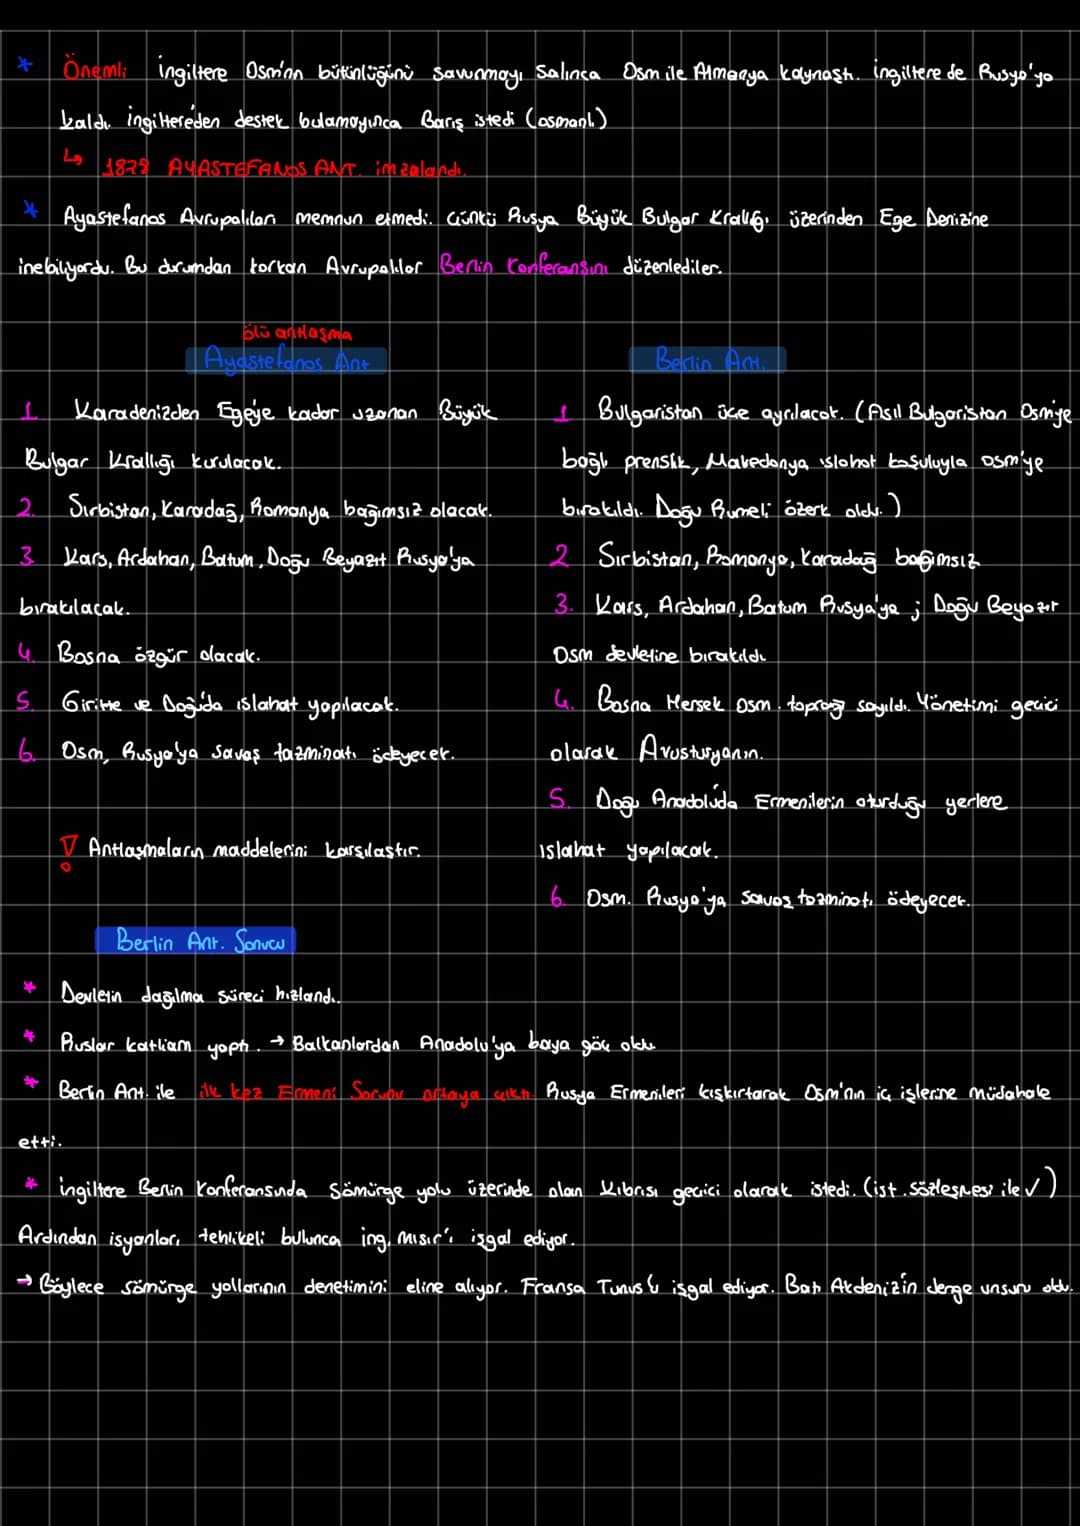 * Önemli ingiltere Osm'nın bütünlüğünü savunmayı Salınca Osm ile Almanya kaynaştı. ingiltere de Rusya'ya
kaldı. ingiltere'den destek bulamayınca Barış istedi (osmanlı)
↳ 1878 AYASTEFANOS ANT. imzalandı.
* Ayastefanos Avrupalıları memnun etmedi. Çünkü Rusya Büyük Bulgar Krallığı üzerinden Ege Denizine
inebiliyordu. Bu durumdan korkan Avrupalılar Berlin Konferansını düzenlediler.
ölü antlaşma
Ayastefanos Ant
Berlin Ant.
1 Karadenizden Ege'ye kadar uzanan Büyük
Bulgar Krallığı kurulacak.
2. Sırbistan, Karadağ, Romanya bağımsız olacak.
3 Kars, Ardahan, Batum, Doğu Beyazıt Rusya'ya
bırakılacak.
4. Bosna özgür olacak.
5. Giritte ve Doğu'da ıslahat yapılacak.
6. Osm, Rusya'ya savaş tazminatı ödeyecek.
! Antlaşmaların maddelerini karşılaştır.
1 Bulgaristan üçe ayrılacak. (Asıl Bulgaristan Osm'ye
bağlı prenslik, Makedonya ıslahat koşuluyla osm'ye
bırakıldı. Doğu Rumeli özerk oldu.)
2 Sırbistan, Romanya, Karadağ bağımsız
3. Kars, Ardahan, Batum Rusya'ya ; Doğu Beyazıt
Osm devletine bırakıldı
4. Bosna Hersek Osm. toprağı sayıldı. Yönetimi geçici
olarak Avusturyanın.
5. Doğu Anadolu'da Ermenilerin oturduğu yerlere
ıslahat yapılacak.
6. Osm. Rusya'ya savaş tazminatı ödeyecek.
Berlin Ant. Sonucu
* Devletin dağılma süreci hızlandı.
* Ruslar katliam yaptı. → Balkanlardan Anadolu'ya baya göç oldu
* Berlin Ant. ile ilk kez Ermeni Sorunu ortaya çıktı. Rusya Ermenileri kışkırtarak Osm'nın iç işlerine müdahale
etti.
* ingiltere Berlin Konferansında Sömürge yolu üzerinde olan Kıbrısı geçici olarak istedi. (ist. sözleşmesi ile ✓)
Ardından isyanları tehlikeli bulunca ing. mısır'ı işgal ediyor.
→ Böylece sömürge yollarının denetimini eline alıyor. Fransa Tunus'u işgal ediyor. Batı Akdeniz'in denge unsuru oldu.